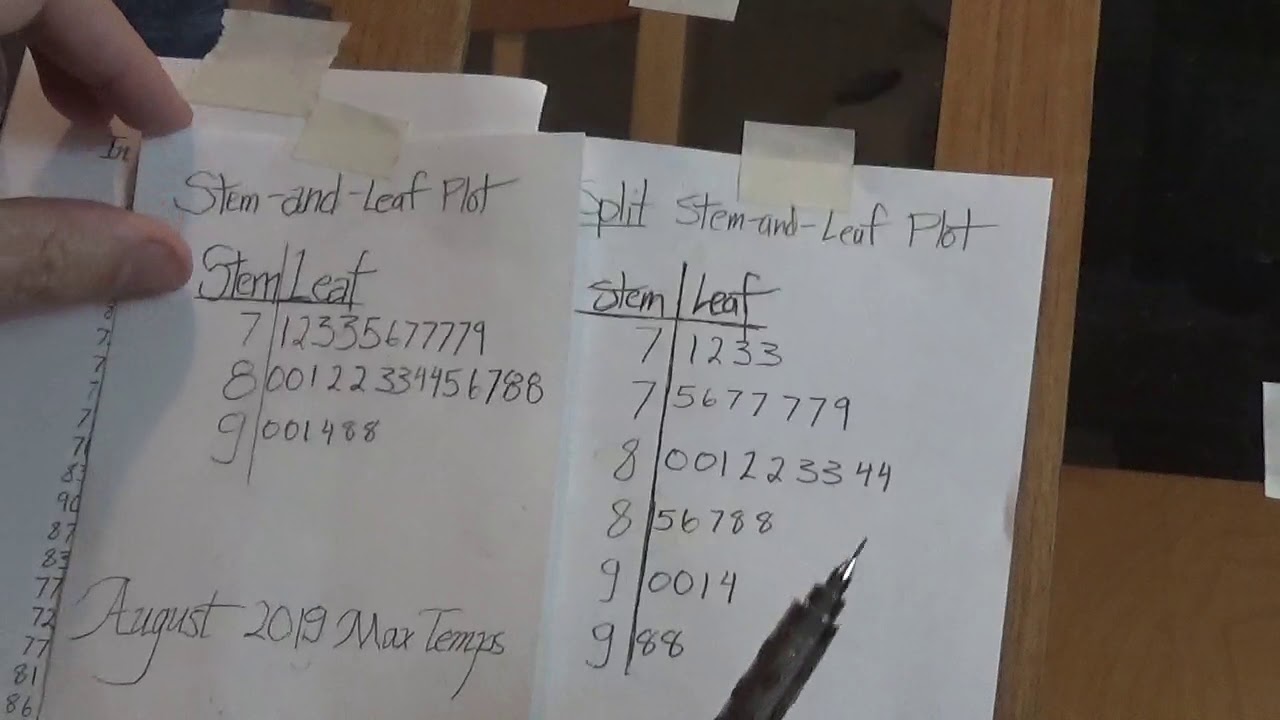 In
Stem-and-Leaf Plot
Stem Leaf
7 12335677779
8 00122334456788
9 001488
August 2019 Max Temps
83
90
87
83
77
72
77
81
86
Split Stem-and-Leaf Plot
Stem Leaf
7 1233
7 5677779
8 001223344
8 56788
9 0014
9 88